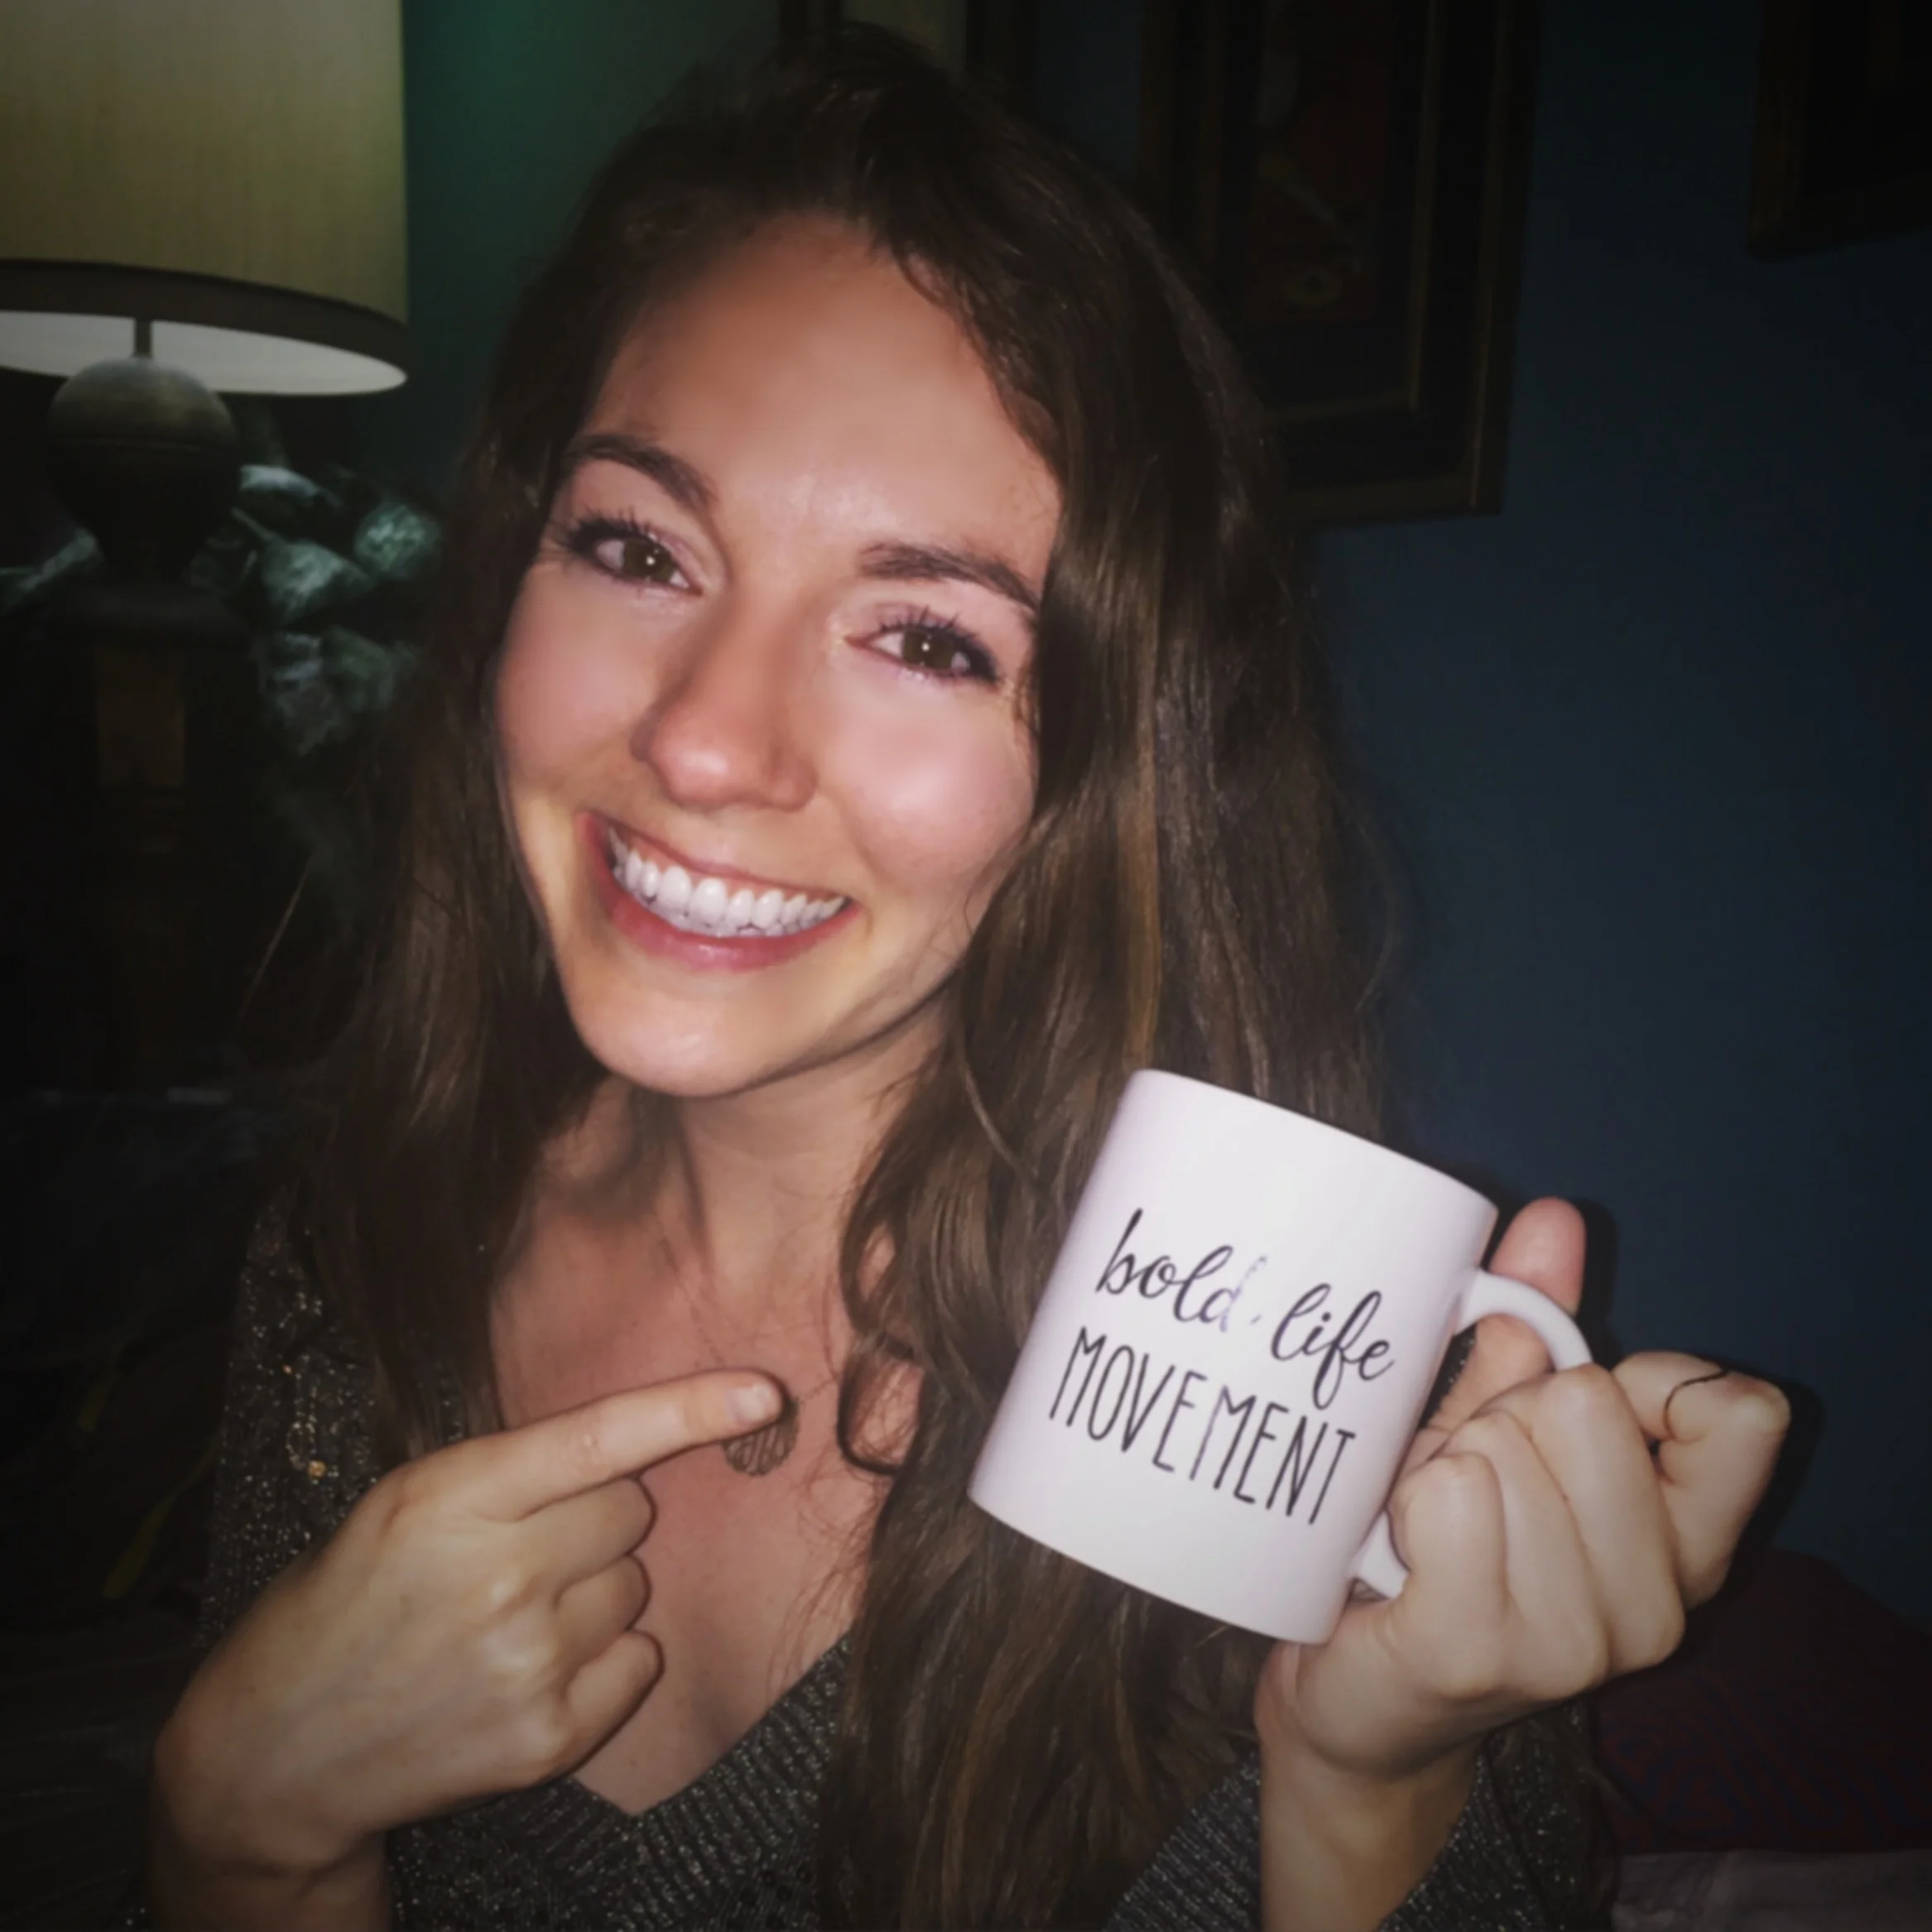 bold life
MOVEMENT